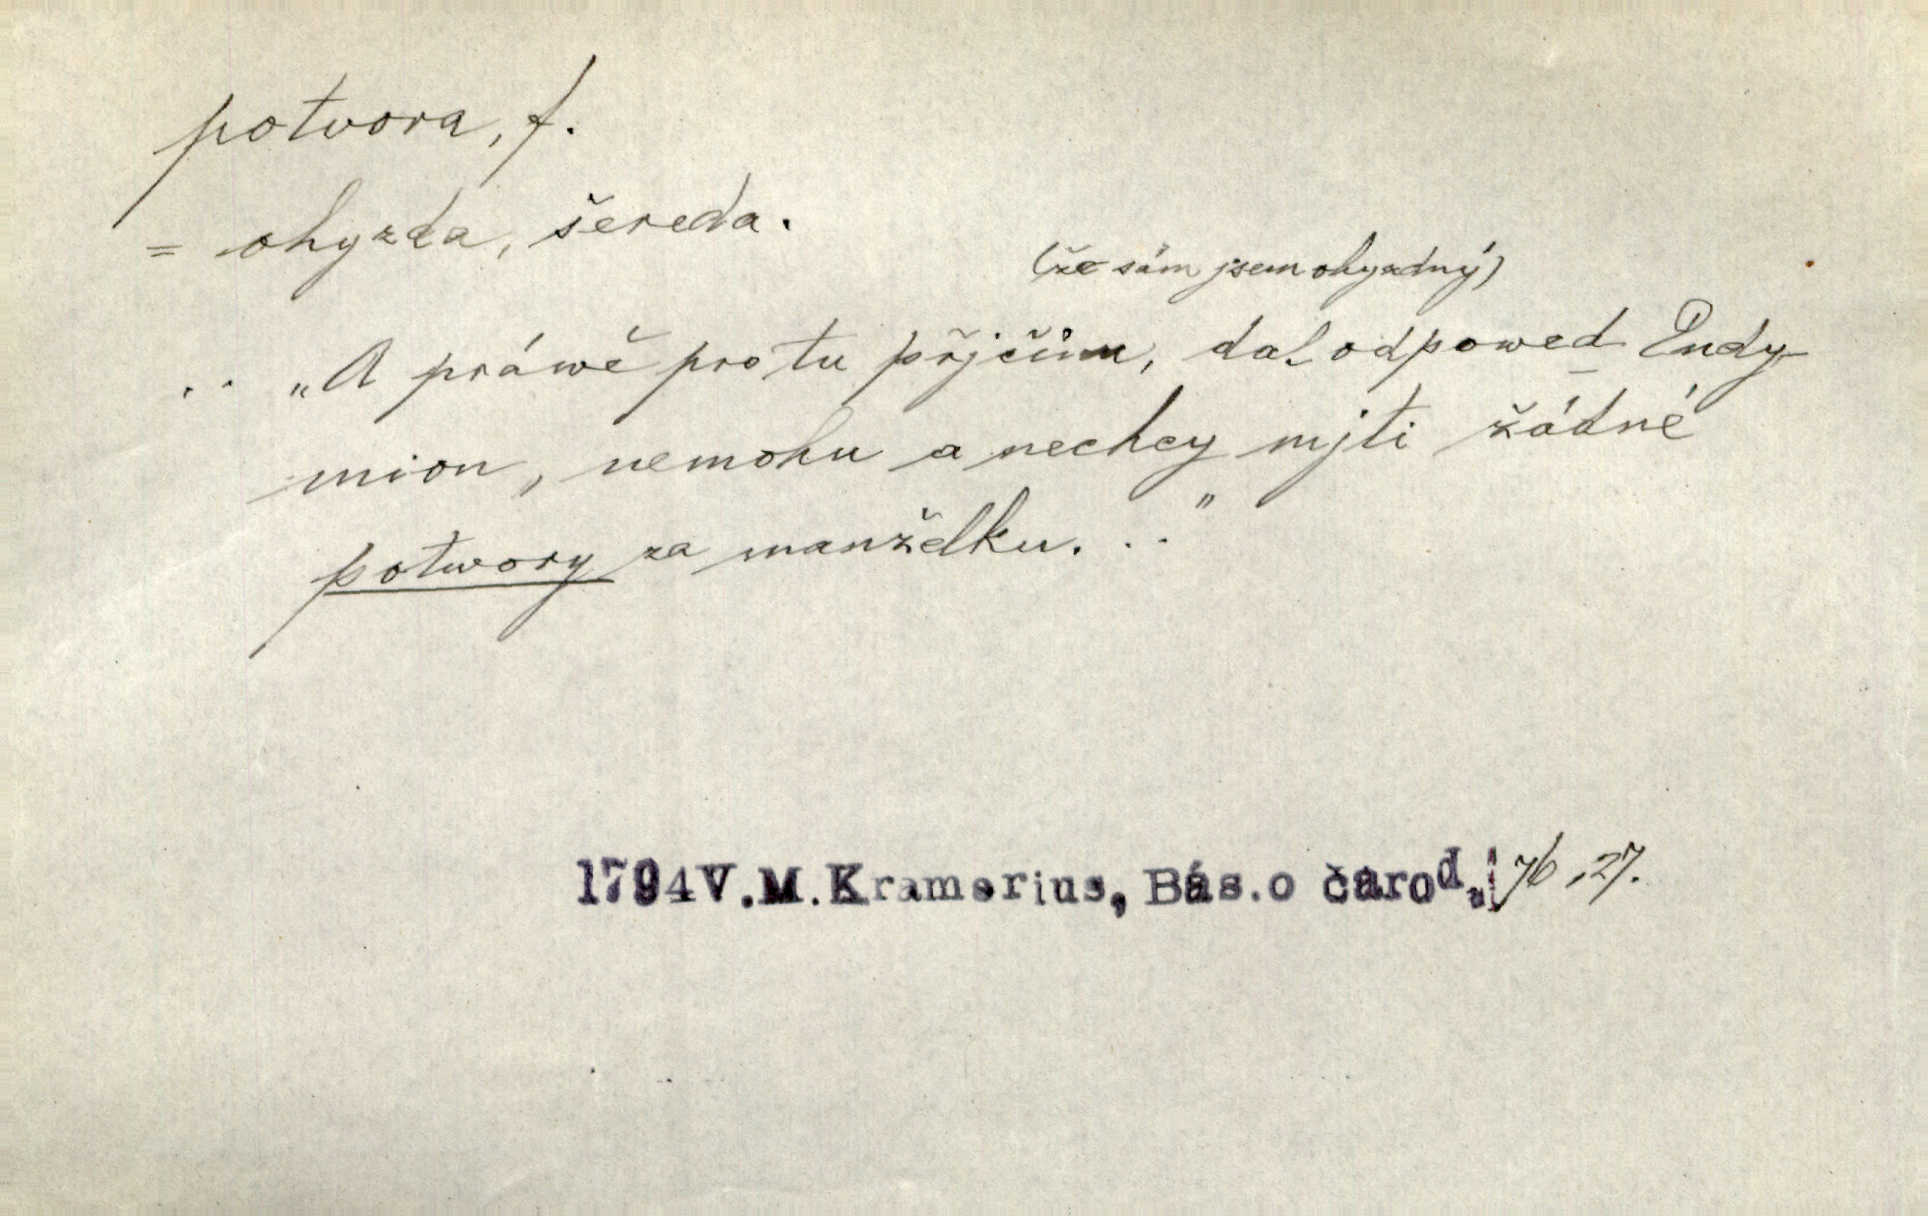 potvora, f.
= ohyzda, šereda.
(že sám jsem ohyzdný)
.. „A práwě pro tu přjčinu, dal odpowed Endy-
mion, nemohu a nechcy mjti žádné
potwory za manželku. . .“
1794 V.M.Kramerius, Bás.o čarod., 76, 27.